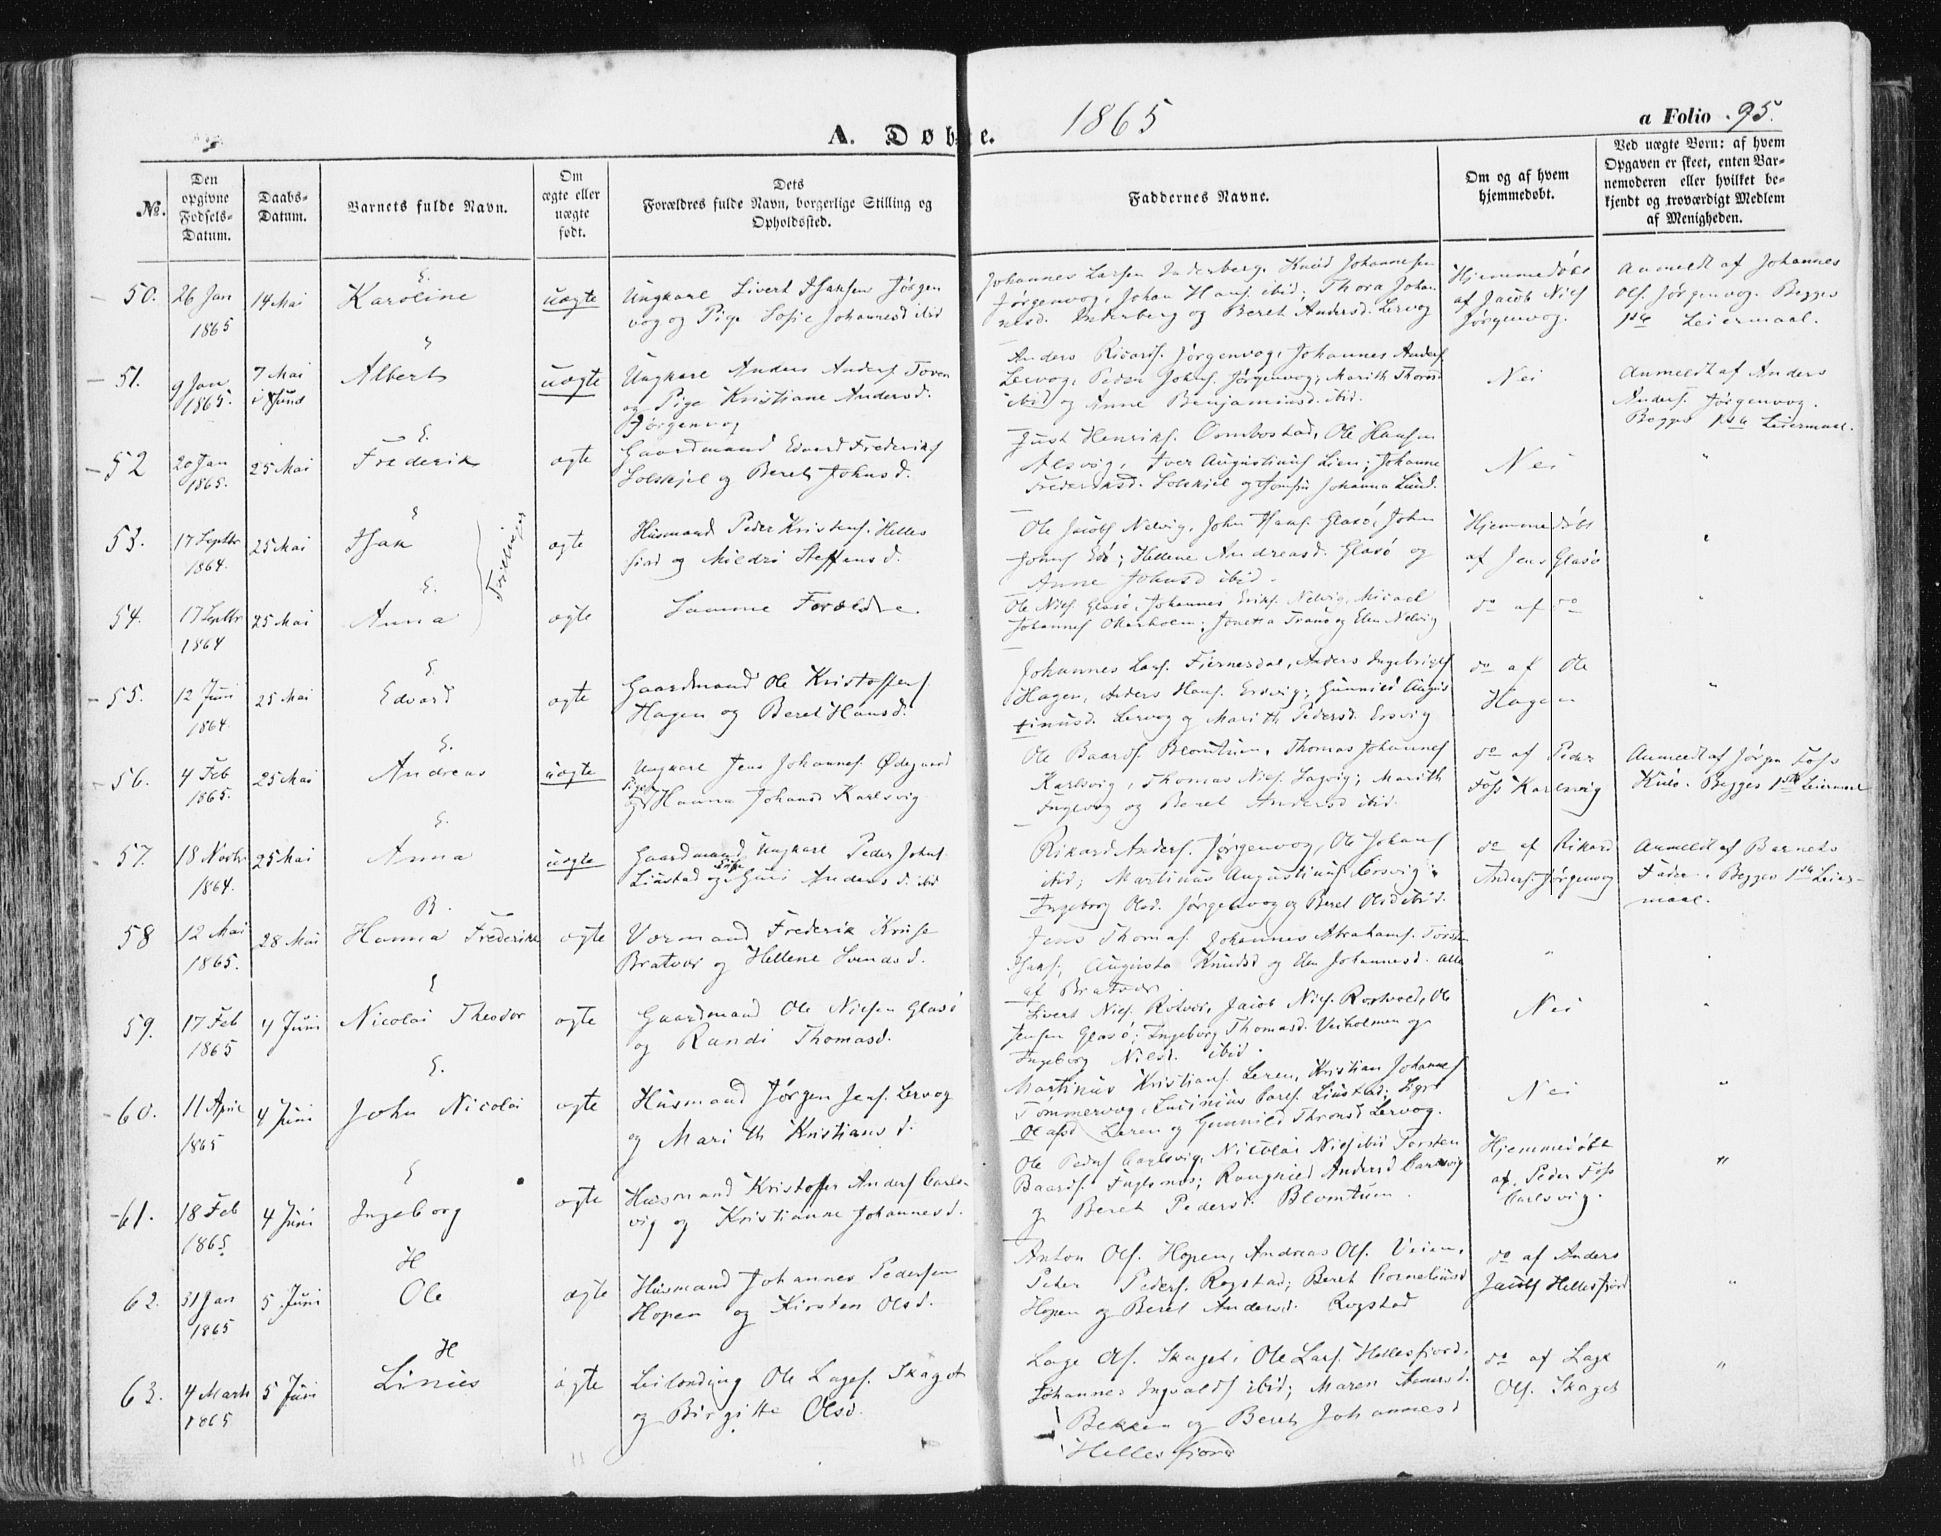 A. Døbte.
1865
a Folio 95.
No.
Den opgivne Fødsels-Datum.
Daabs-Datum.
Barnets fulde Navn.
Om ægte eller uægte født.
Dets Forældres fulde Navn, borgerlige Stilling og Opholdssted.
Faddernes Navne.
Om og af hvem hjemmedøbt.
Ved uægte Børn: af hvem Opgaven er skeet, enten Barnemoderen eller hvilket bekjendt og troværdigt Medlem af Menigheden.
50. 26 Jan 1865 14 Mai E. Karoline uægte
Ungkarl Sivert Isaksen Jørgen
vog og Pige Sofie Johannesd ibid
Johannes Larsen Inderberg, Knud Johannesen
Jørgenvog, Johan Hans. ibid; Thora Johan
nesd. Inderberg og Beret Andersd. Lervog
Hjemmedøbt
af Jacob Niels
Jørgenvog.
Anmeldt af Johannes
Ols. Jørgenvog. Begges
1ste Leiermaal.
51. 9 Jan 1865. 7 Mai Albert uægte
Ungkarl Anders Anders Toven
og Pige Kristiane Andersd.
Jørgenvog
Anders Ricards. Jørgenvog, Johannes Anders
Lervog, Peder Johns. Jørgenvog, Marith Thorsd
ibid og Anne Benjaminsd. ibid.
Nei
Anmeldt af Anders
Anders. Jørgenvog.
Begges 1ste Leiermaal.
52 20 Jan 1865. 25 Mai E. Frederik ægte
Gaardmand Edvard Frederiks
Solskjel og Beret Johnsd.
Just Henriks. Ombostad, Ole Hansen
Alsvog, Iver Augustinus Lien; Johanne
Frederiksd. Solskjel og Jomfru Johanna Lund.
Nei "
53. 17 Septbr 1864. 25 Mai Isak ægte
Tvillinger
Husmand Peder Kristens. Helles
fiord og Mildri Steffensd.
Ole Jacobs Nelvig, John Isaks. Glasø, John
Johns Edø; Hellene Andreasd. Glasø og
Anne Johnsd ibid.
Hjemmedøbt
af Jens Glasø
54. 17 Septbr 1864 25 Mai E. Anna ægte
Samme Forældre
Ole Niels. Glasø, Johannes Eriks. Nelvig, Micael
Johannes Okerholm; Jonetta Tranø og Elen Nelvig
do af do
55. 12 Juni 1864. 25 Mai E. Edvard ægte
Gaardmand Ole Kristoffers
Hagen og Beret Hansd.
Johannes Lars. Fiernesdal, Anders Ingebrigts
Hagen, Anders Hans. Ersvig; Gunnild Augus
tinusd. Lervog og Marith Pedersd. Ersvig
do af Ole
Hagen
"
56. 4 Feb 1865. 25 Mai E. Andreas uægte
Ungkarl Jens Johannes. Ødegaard
og Pige Hanna Johansd Karlsvig
Ole Baards Blomtuen, Thomas Johannes
Karlsvig, Thomas Niels. Lagvig; Marith
Fuglevog og Beret Andersd ibid.
do af Peder
Foss Karlsvig
Anmeldt af Jørgen Foss
Kulø. Begges 1ste Leiermaal
57. 18 Novbr 1864. 25 Mai E. Anna uægte
Gaardmand Ungkarl Peder Johns.
Liustad og Pige Guri Andersd. ibid
Rikard Anders. Jørgenvog, Ole Johans
ibid; Martinus Augustinus Ersvig,
Ingeborg Olsd. Jørgenvog og Beret Olsd ibid.
do af Rikard
Anders. Jørgenvog
Anmeldt af Barnets
Fader. Begges 1ste Leier-
maal.
58 12 Mai 1865. 28 Mai B. Hanna Frederikke ægte
Vormand Frederik Kruse
Bratvær og Hellene Svendsd.
Jens Thomas. Johannes Abrahams. Torsten
Isaks; Augusta Knudsd og Elen Johannesd. Alle
af Bratvær.
"
59. 17 Feb 1865 4 Juni E Nicolai Theodor ægte
Gaardmand Ole Nielsen Glasø
og Randi Thomasd.
Sivert Niels. Rotvær, Jacob Niels. Rostvold, Ole
Jensen Glasø; Ingeborg Thomasd. Veiholmen og
Ingeborg Nilsd. ibid.
Nei
60. 11 April 1865 4 Juni E. John Nicolai ægte
Husmand Jørgen Jens. Lervog
og Marith Kristiansd.
Martinus Kristians. Leren, Kristian Johannes
Tømmervog, Liustad;
Olafsd Leren og Gunnild Thronsd Lervog.
Nei "
61. 18 Feb 1865 4 Juni E Ingeborg ægte
Husmand Kristoffer Anders Carls-
vig og Kristianne Johannesd.
Ole Peders Carlsvig, Nicolai Niels ibid Torsten
Baards. Fuglsnes; Rangnild Andersd Carlsvig
og Beret Pedersd. Blomtuen.
Hjemmedøbt
af Peder Foss
Carlsvig.
"
62. 31 Jan 1865 5 Juni H Ole ægte
Husmand Johannes Pedersen
Hopen og Kirsten Olsd.
Anton Ols. Hopen, Andreas Ols. Veien,
Peter Peders. Rogstad; Beret Corneliusd
Hopen og Beret Andersd. Rogstad
do af Anders
Jacobs Hellesfjord
"
63. 4 Marts 1865 5 Juni H Linius ægte
Leilending Ole Lages. Skaget
og Birgitte Olsd.
Lage Ols. Skaget, Ole Lars. Hellesfjord,
Johannes Ingvalds ibid; Maren Andersd.
Bekken og Beret Johannesd
Hellesfjord
do af Lage
Ols. Skaget
"